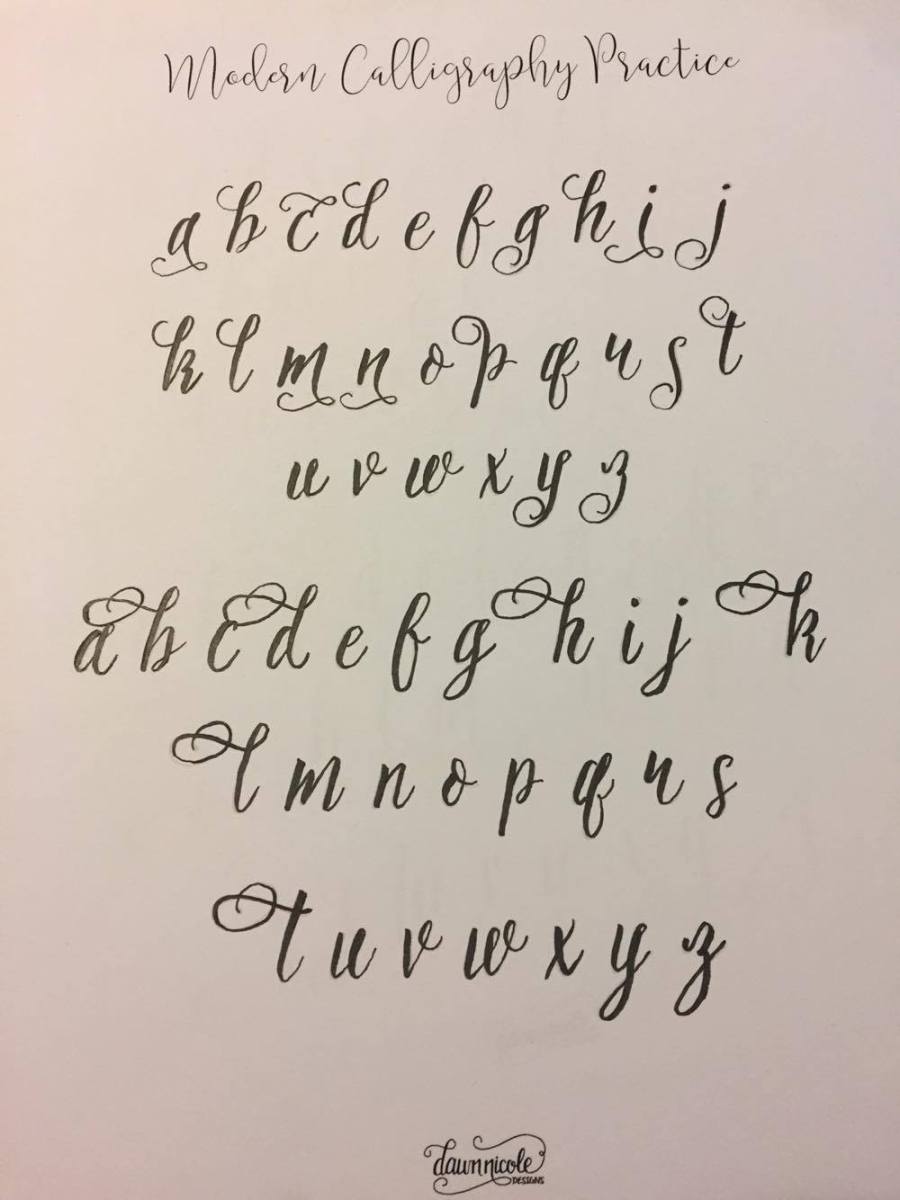 Modern Calligraphy Practice
a b c d e f g h i j
k l m n o p q r s t
u v w x y z
a b c d e f g h i j k
l m n o p q r s
t u v w x y z
dawnnicole
DESIGNS